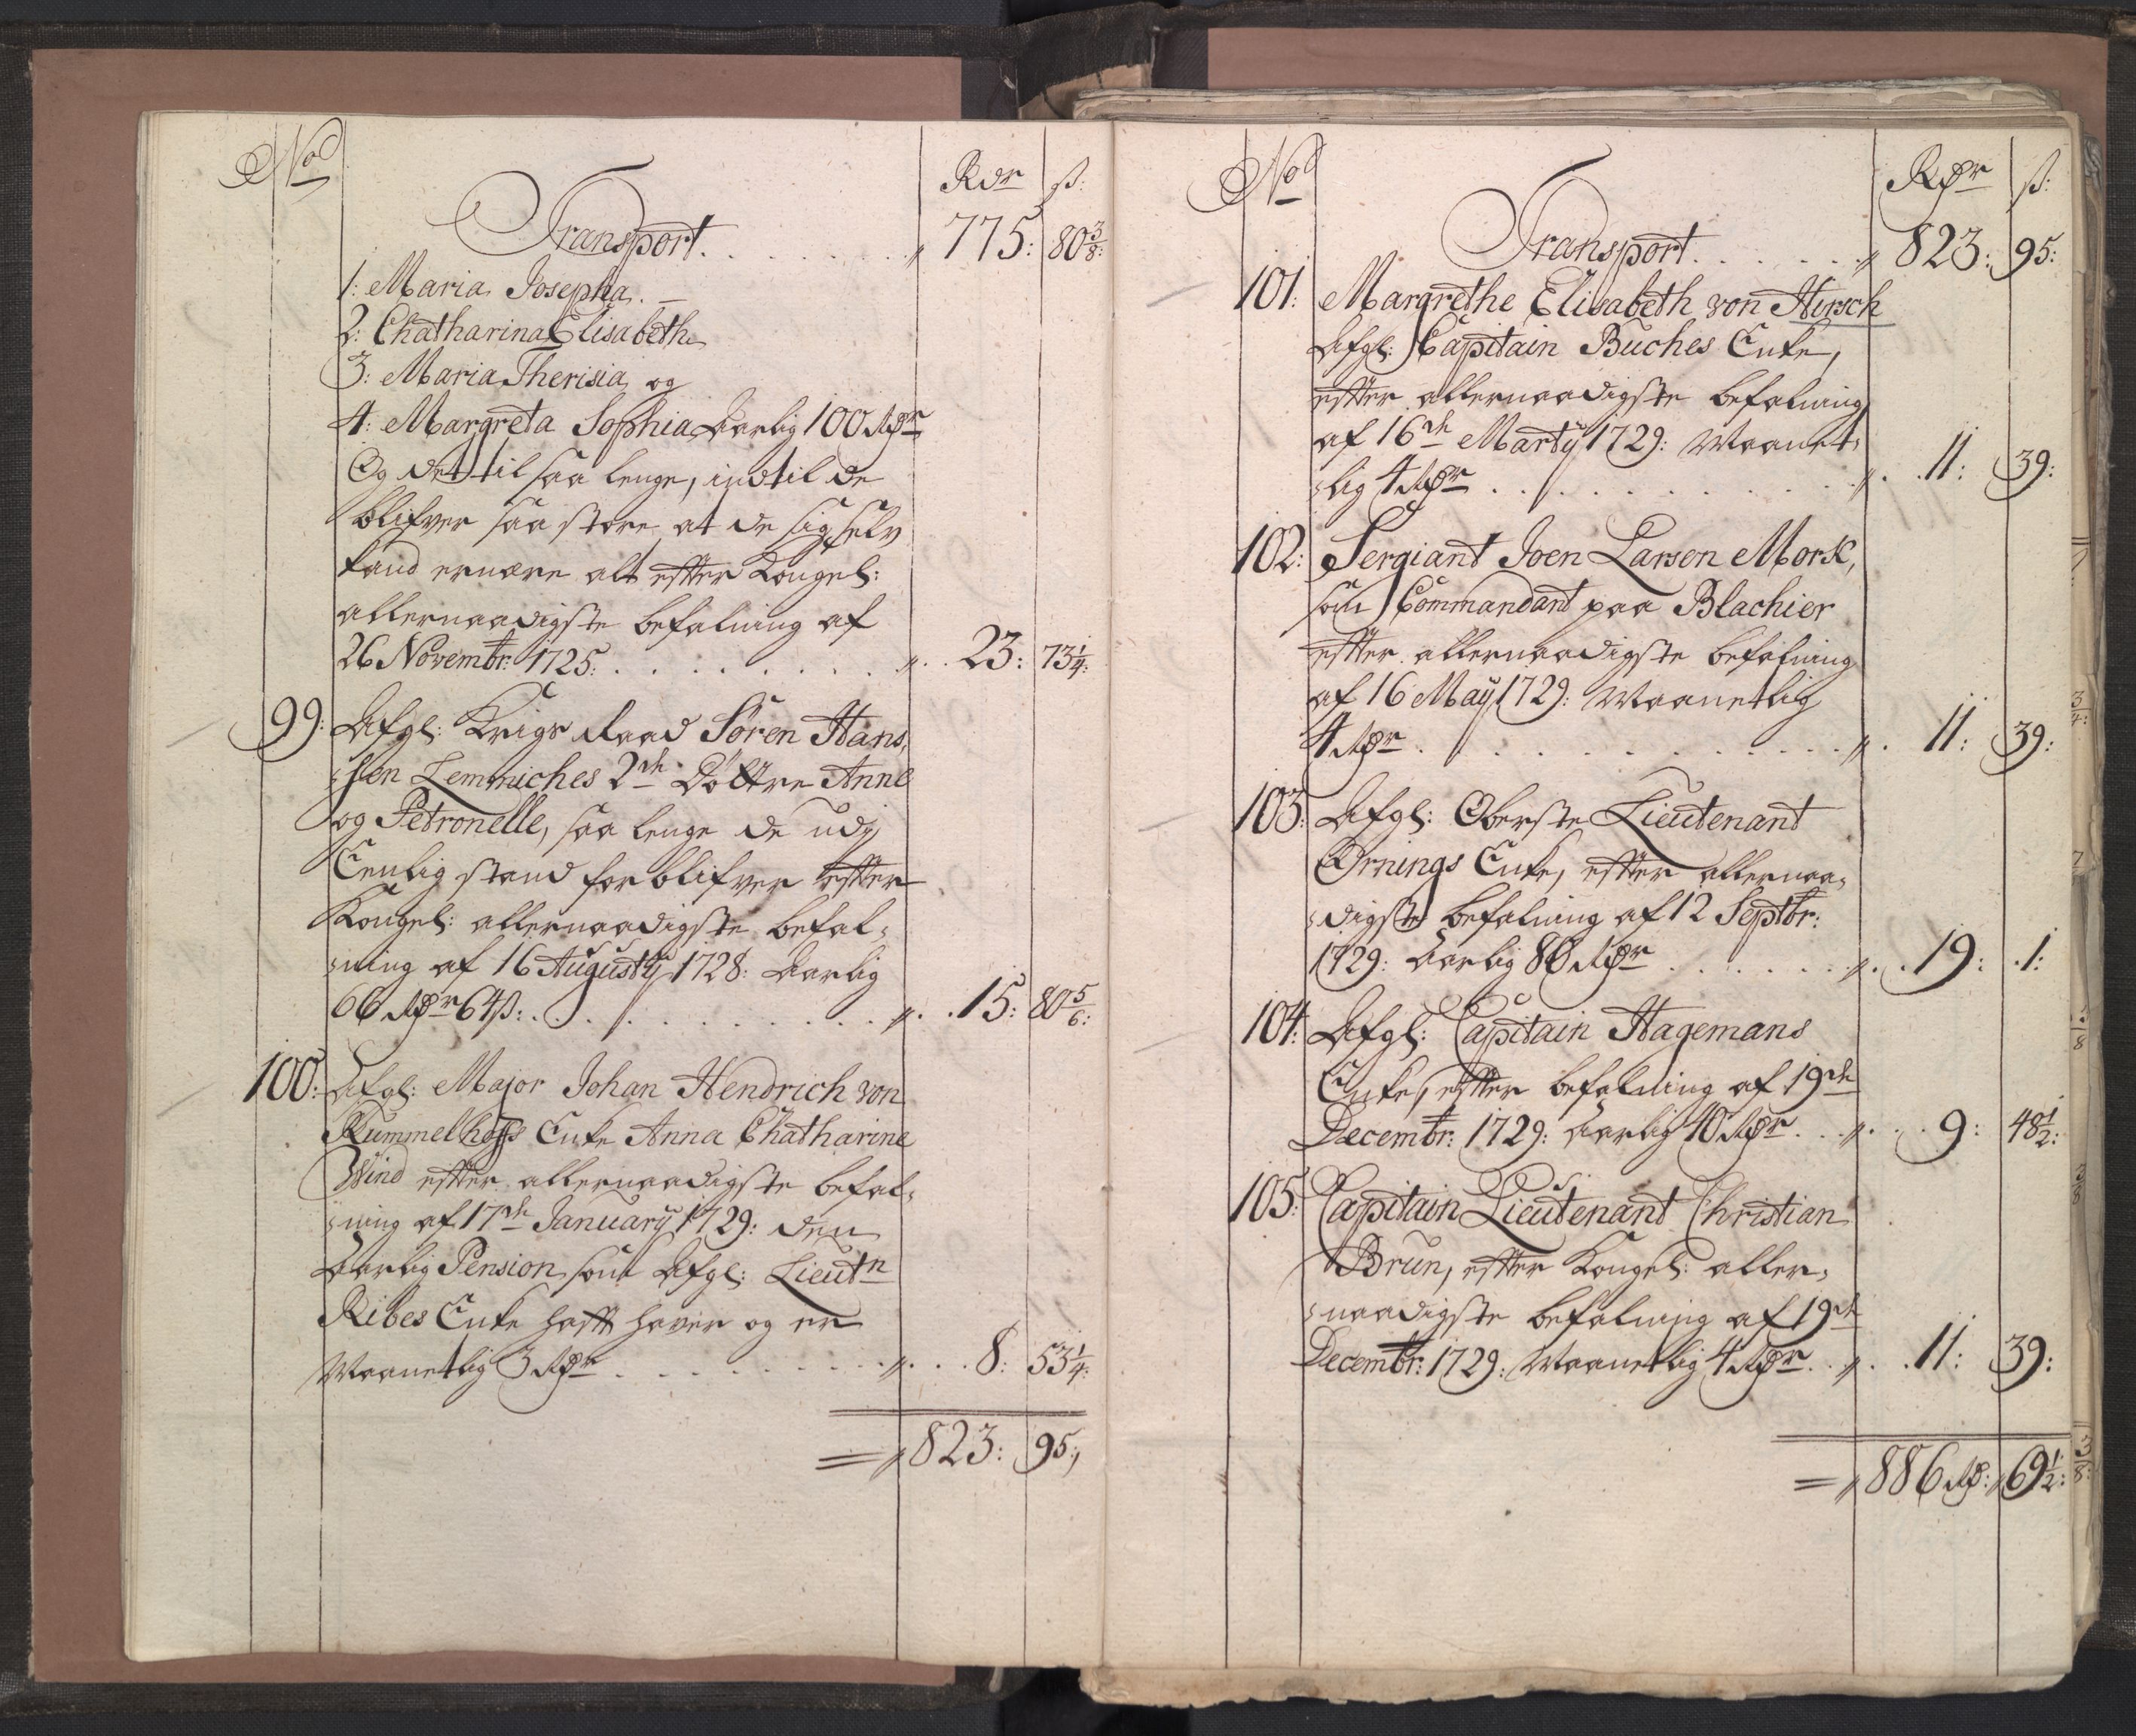 No
Rdr ß:
Transport. . . . . . . . " 775: 80 3/8:
1: Maria Josepha. –
2: Chatharina Elisabetha
3: Maria Therisia og
4: Margreta Sophia Aarlig 100 Rdr
Og det til saa lenge, indtil de
blifver saa store at de sig selv
kand ernære alt efter Kongel:
allernaadigste befalning af
26 Novembr: 1725: . . . . . . . . " . . 23: 73 1/4:
99: Afgl: Krigs Raad Sören Hans,
:sen Lemmiches 2de Döttre Anne
og Petronelle, saa lenge de udj
Eenlig stand forblifver efter
Kongel: allernaadigste befal,
:ning af 16 Augusty 1728: Aarlig
66 Rdr 64 ß: . . . . . . . . . . " . . 15: 80 5/6:
100: Afgl: Major Johan Hendrich von
Rummelhoffs Enke Anna Chatharine
Wind efter allernaadigste befal,
:ning af 17de January 1729: den
Aarlig Pension som Afgl: Lieutn
Ribes Enke hafft haver og er
Maanetlig 3 Rdr . . . . . . . . " . . . 8: 53 1/4:
= " 823: 95:,
No
Rdr ß:
Transport. . . . . . . " 823: 95:
101: Margrethe Elisabeth von Hirsch
Afgl: Capitain Buches Enke,
efter allernaadigste befalning
af 16de Marty 1729: Maanet,
:lig 4 Rdr . . . . . . . . . . " . . 11: 39:
102: Sergiant Joen Larsen Mork,
som Commandant paa Blachier
efter allernaadigste befalning
af 16 May 1729: Maanetlig
4 Rdr . . . . . . . . . . . . " . 11: 39:
103: Afgl: Oberste Lieutenant
Ørnings Enke, efter allernaa,
:digste befalning af 12 Septbr:
1729: Aarlig 80 Rdr . . . . . . " . . 19: .1:
104: Afgl: Capitain Hagemans
Enke, efter befalning af 19de
Decembr: 1729: Aarlig 40 Rdr . . . " . . . 9: 48 1/2:
105: Capitain Lieutenant Christian
Brun, efter Kongel: aller,
:naadigste befalning af 19de
Decembr: 1729: Maanetlig 4 Rdr . . " . . 11: 39:
= " 886 Rd: " 69 1/2: